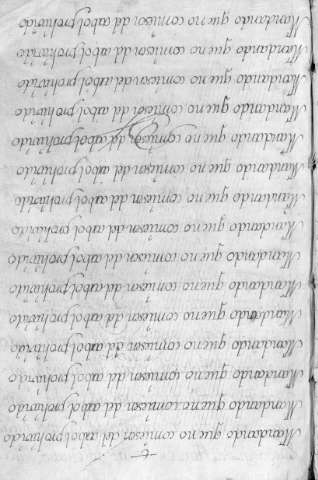 Mandando que no comiesen del arbol prohivido
Mandando que no comiesen del arbol prohivido
Mandando que no comiesen del arbol prohivido
Mandando que no comiesen del arbol prohivido
Mandando que no comiesen del arbol prohivido
Mandando que no comiesen del arbol prohivido
Mandando que no comiesen del arbol prohivido
Mandando que no comiesen del arbol prohivido
Mandando que no comiesen del arbol prohivido
Mandando que no comiesen del arbol prohivido
Mandando que no comiesen del arbol prohivido
Mandando que no comiesen del arbol prohivido
Mandando que no comiesen del arbol prohivido
Mandando que no comiesen del arbol prohivido
Mandando que no comiesen del arbol prohivido